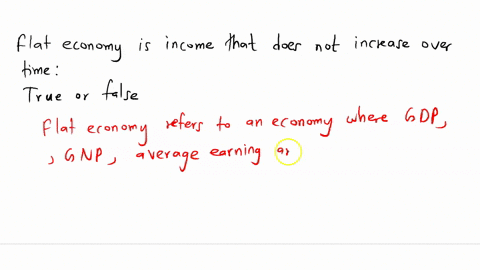 Flat economy is income that does not increase over
time:
True or false
Flat economy refers to an economy where GDP,
, GNP, average earning ar